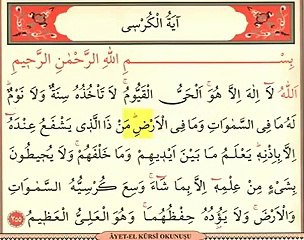 اٰيَةُ الْكُرْسِى
بِسْــــــمِ اللّٰهِ الرَّحْمٰنِ الرَّحٖيمِ
اَللّٰهُ لَٓا اِلٰهَ اِلَّا هُوَۚ اَلْحَىُّ الْقَيُّومُۚ لَا تَاْخُذُهُ سِنَةٌ وَلَا نَوْمٌۜ
لَهُ مَا فِى السَّمٰوَاتِ وَمَا فِى الْاَرْضِۜ مَنْ ذَا الَّذٖى يَشْفَعُ عِنْدَهُٓ
اِلَّا بِاِذْنِهٖۜ يَعْلَمُ مَا بَيْنَ اَيْدٖيهِمْ وَمَا خَلْفَهُمْۚ وَلَا يُحٖيطُونَ
بِشَىْءٍ مِنْ عِلْمِهٖٓ اِلَّا بِمَا شَٓاءَۚ وَسِعَ كُرْسِيُّهُ السَّمٰوَاتِ
وَالْاَرْضَۚ وَلَا يَؤُ۫دُهُ حِفْظُهُمَاۚ وَهُوَ الْعَلِىُّ الْعَظٖيمُ
٢٥٥
ÂYET-EL KÜRSÎ OKUNUŞU